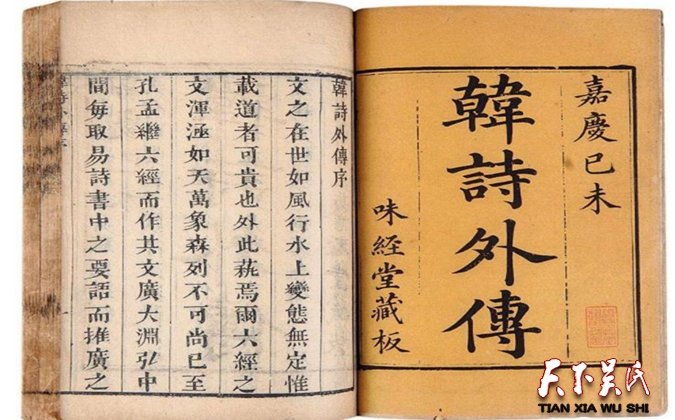 嘉慶己未
韓詩外傳
味經堂藏板
韓詩外傳序
文之在世如風行水上變態無定惟
載道者可貴也外此蓺焉爾六經之
文渾涵如天萬象森列不可尚已至
孔孟繼六經而作其文廣大淵弘中
間每取易詩書中之要語而推廣之
天下吴氏
TIAN XIA WU SHI